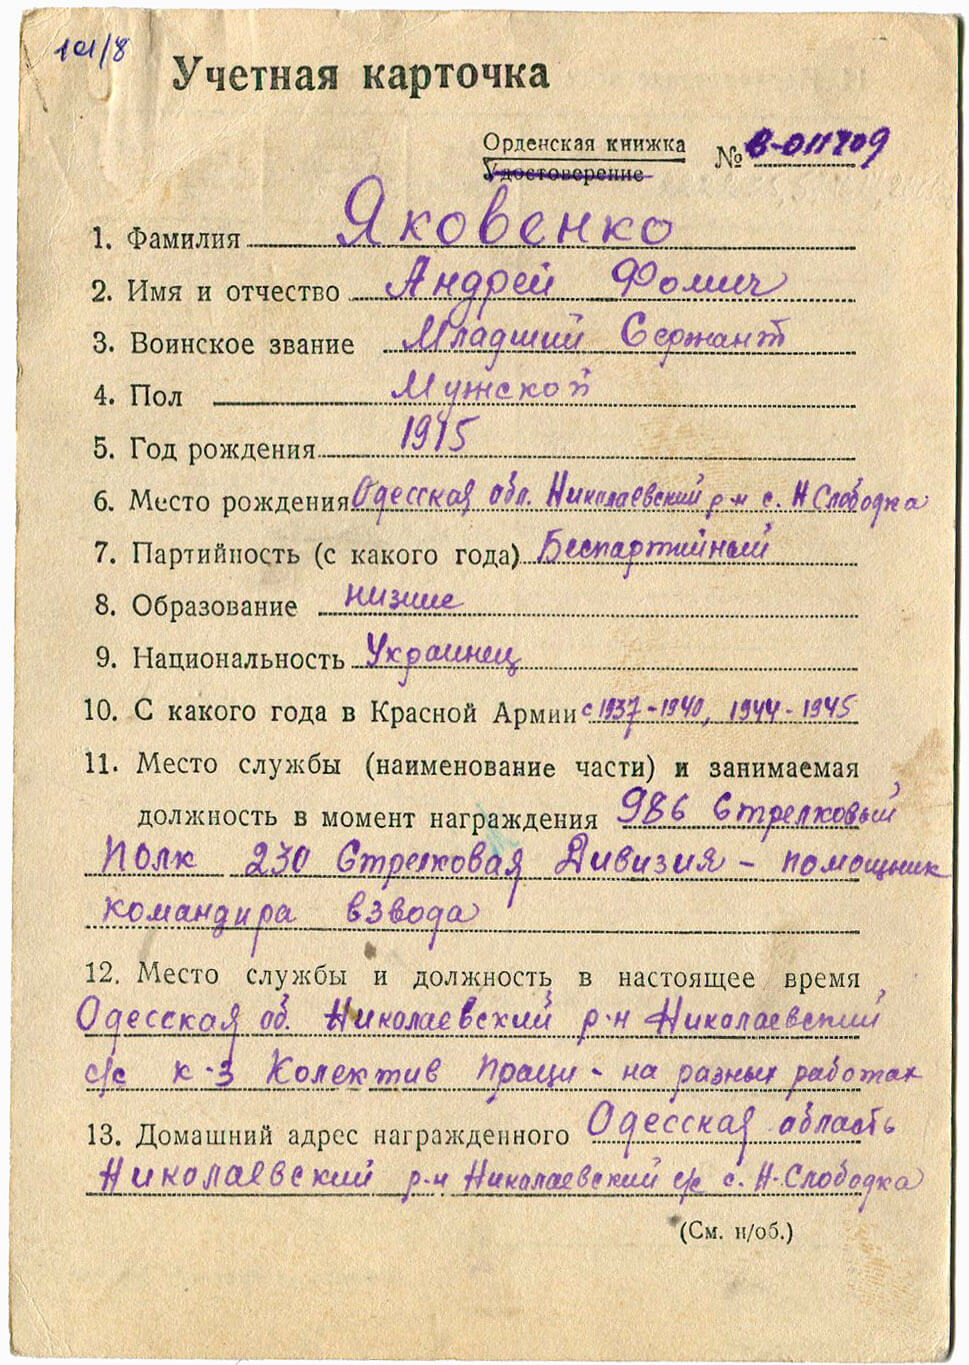 101/8
Учетная карточка
Орденская книжка № В-011709
Удостоверение
1. Фамилия Яковенко
2. Имя и отчество Андрей Фомич
3. Воинское звание Младший Сержант
4. Пол Мужской
5. Год рождения 1915
6. Место рождения Одесская обл. Николаевский р-н с. Н Слободка
7. Партийность (с какого года) Беспартийный
8. Образование низшие
9. Национальность Украинец
10. С какого года в Красной Армии с 1937-1940, 1944-1945
11. Место службы (наименование части) и занимаемая
должность в момент награждения 986 Стрелковый
Полк 230 Стрелковая Дивизия - помощник
командира взвода
12. Место службы и должность в настоящее время
Одесская об. Николаевский р-н Николаевский
с/с к-з Колектив Праци - на разных работах
13. Домашний адрес награжденного Одесская область
Николаевский р-н Николаевский с/с с. Н-Слободка
(См. н/об.)